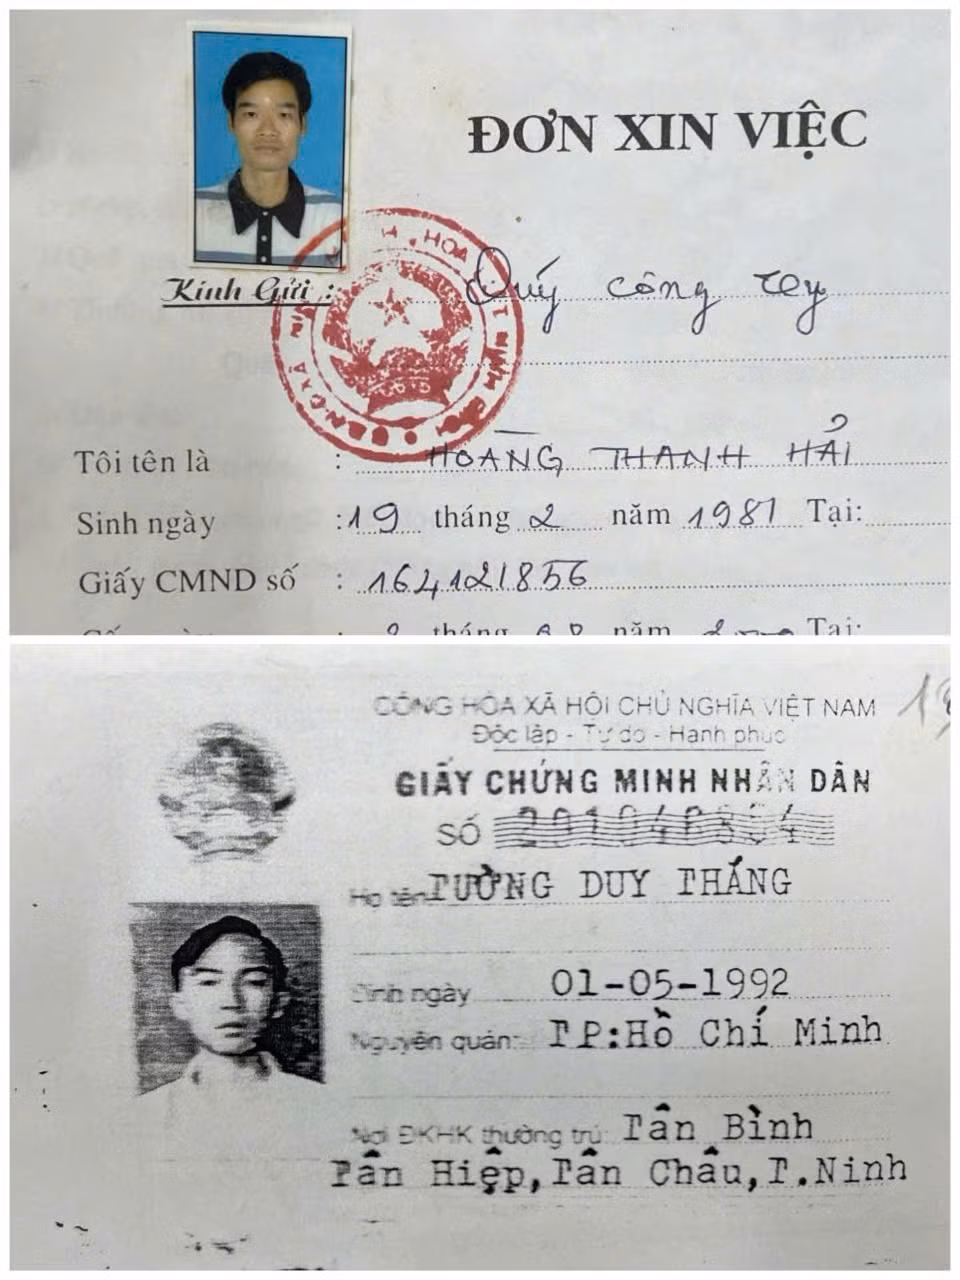 ĐƠN XIN VIỆC
Kính Gửi : Quý công ty
Tôi tên là : HOÀNG THANH HẢI
Sinh ngày : 19 tháng 2 năm 1981 Tại:
Giấy CMND số : 164121856
tháng năm Tại:
CỘNG HÒA XÃ HỘI CHỦ NGHĨA VIỆT NAM
Độc lập - Tự do - Hạnh phúc
GIẤY CHỨNG MINH NHÂN DÂN
SỐ
Họ tên TƯỜNG DUY THẮNG
Sinh ngày 01-05-1992
Nguyên quán: TP:Hồ Chí Minh
Nơi ĐKHK thường trú: Tân Bình
Tân Hiệp, Tân Châu, T.Ninh